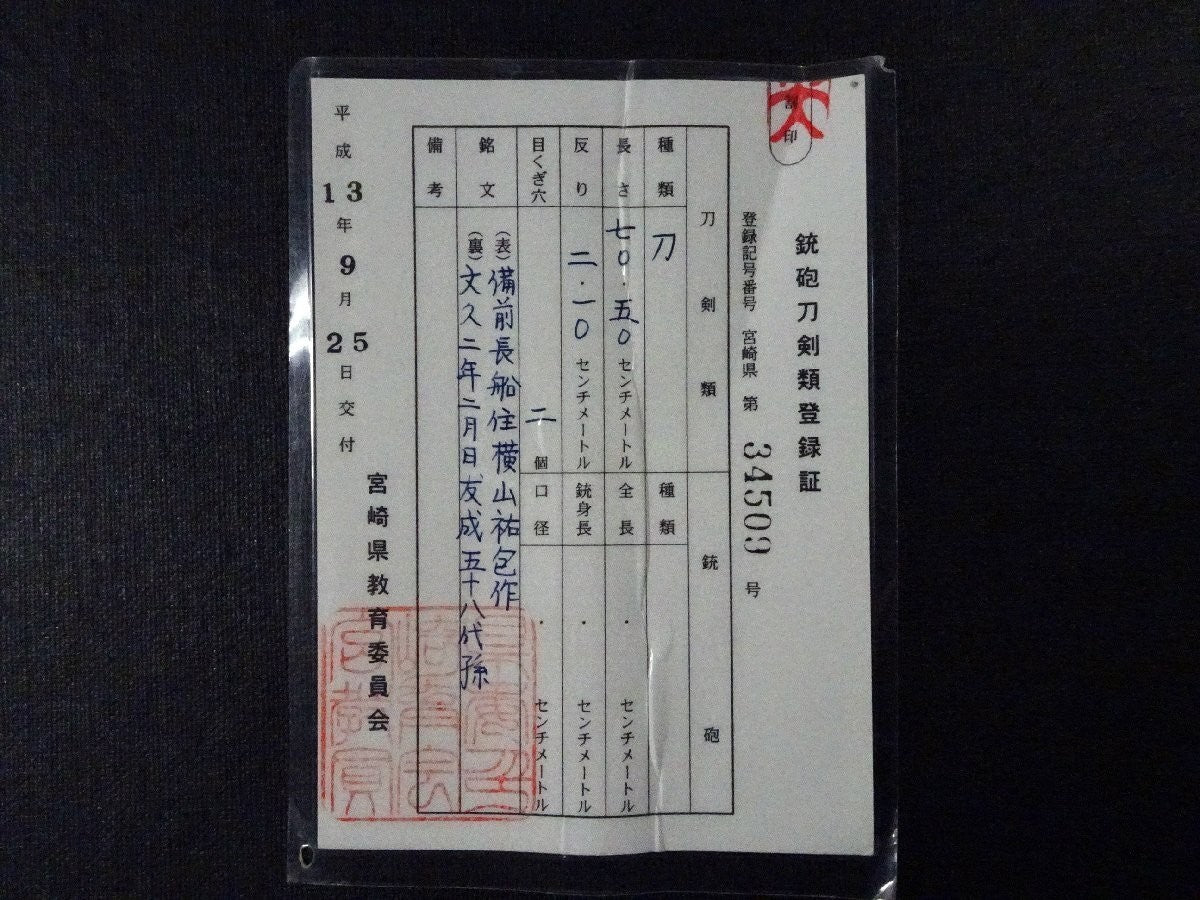 割印
銃砲刀剣類登録証
登録記号番号 宮崎県 第 34509 号
刀剣類
銃砲
種類 刀
種類
長さ 七〇・五〇 センチメートル
全長 ・ センチメートル
反り 二・一〇 センチメートル
銃身長 ・ センチメートル
目くぎ穴 二 個
口径 ・ センチメートル
銘文 (表) 備前長船住横山祐包作
(裏) 文久二年二月日友成五十八代孫
備考
平成13年9月25日交付
宮崎県教育委員会